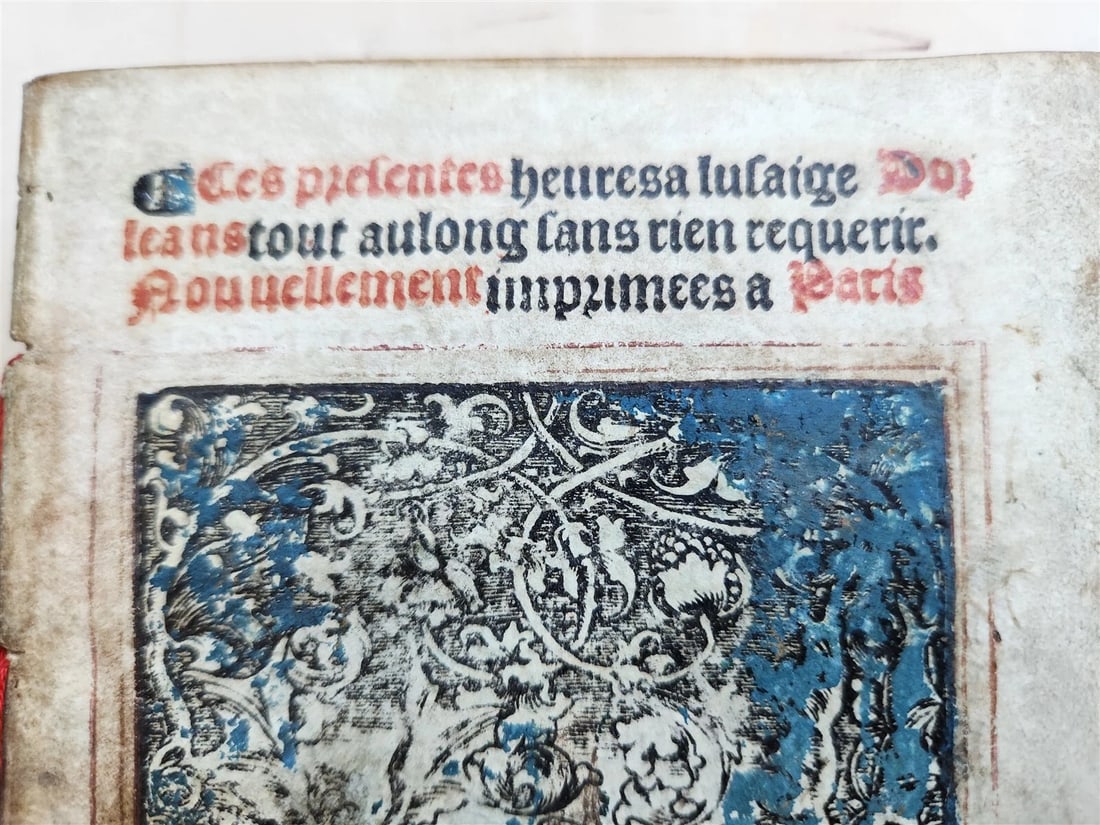 Ces preſentes heures a luſaige Dor
leans tout au long ſans rien requerir.
Nouuellement imprimees a Paris